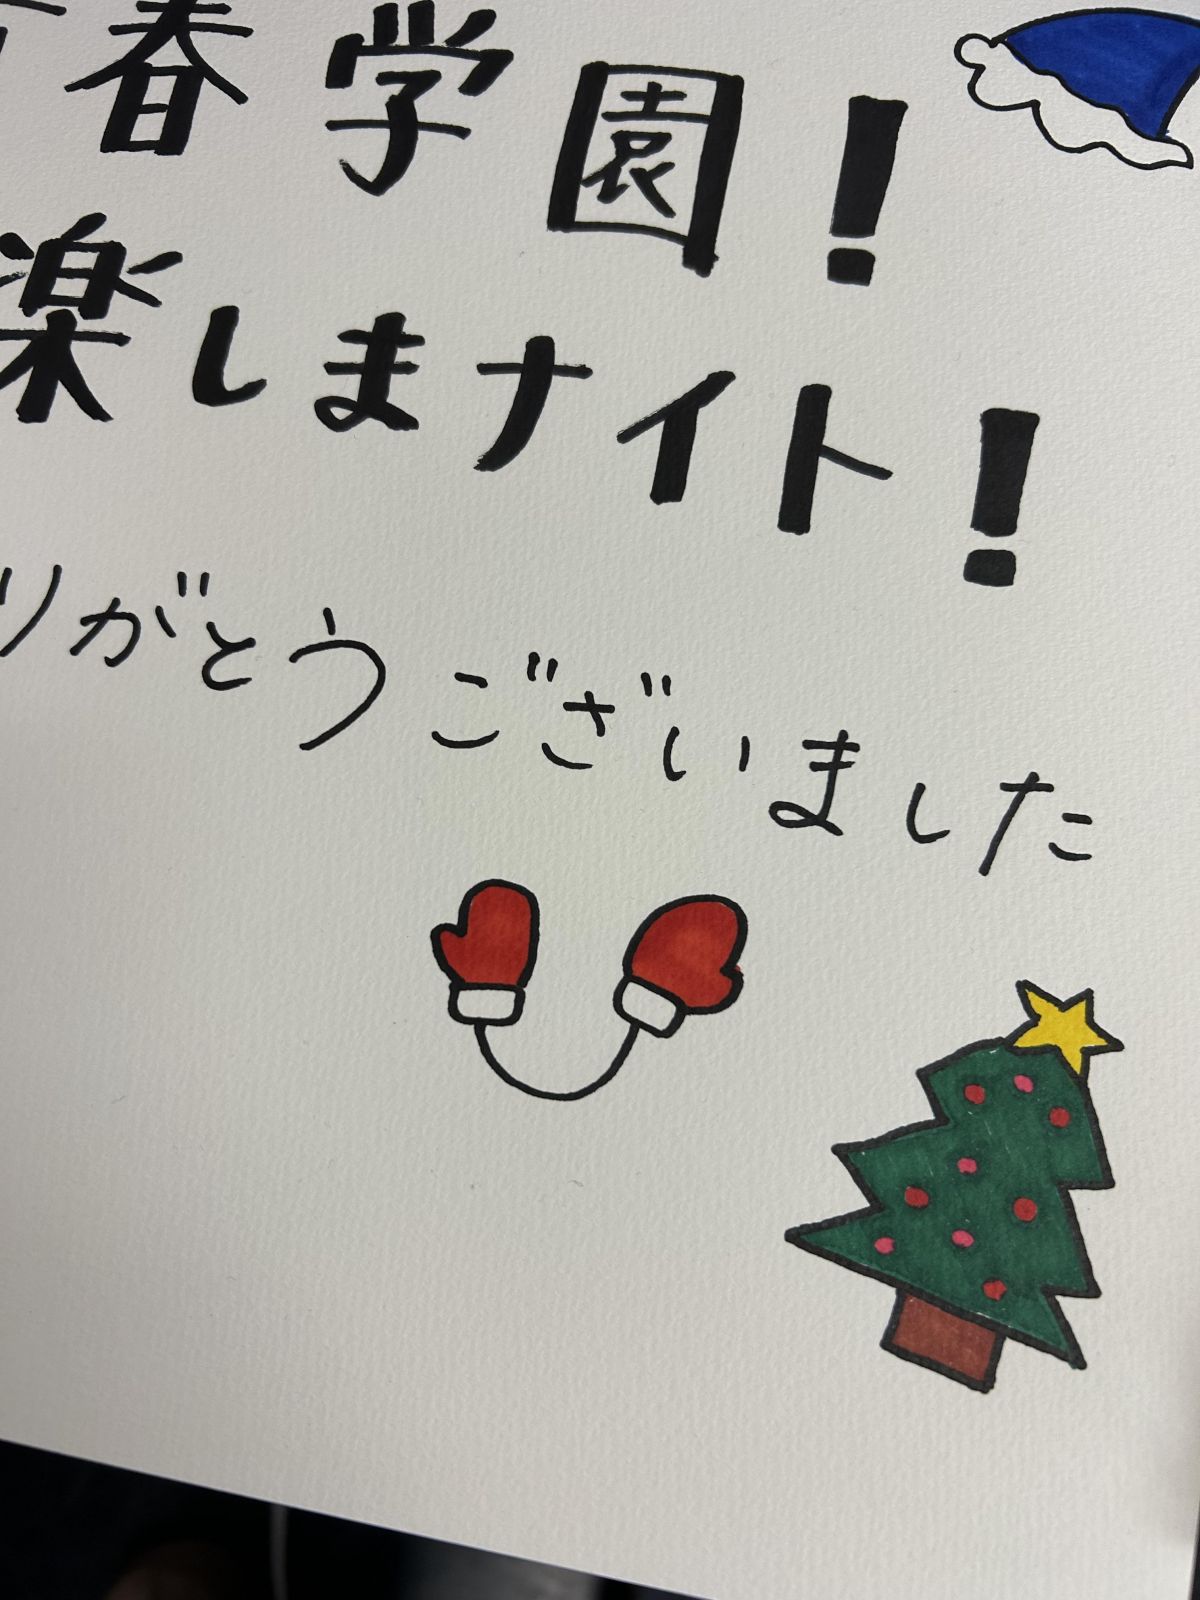 春学園!
楽しまナイト!
りがとうございました